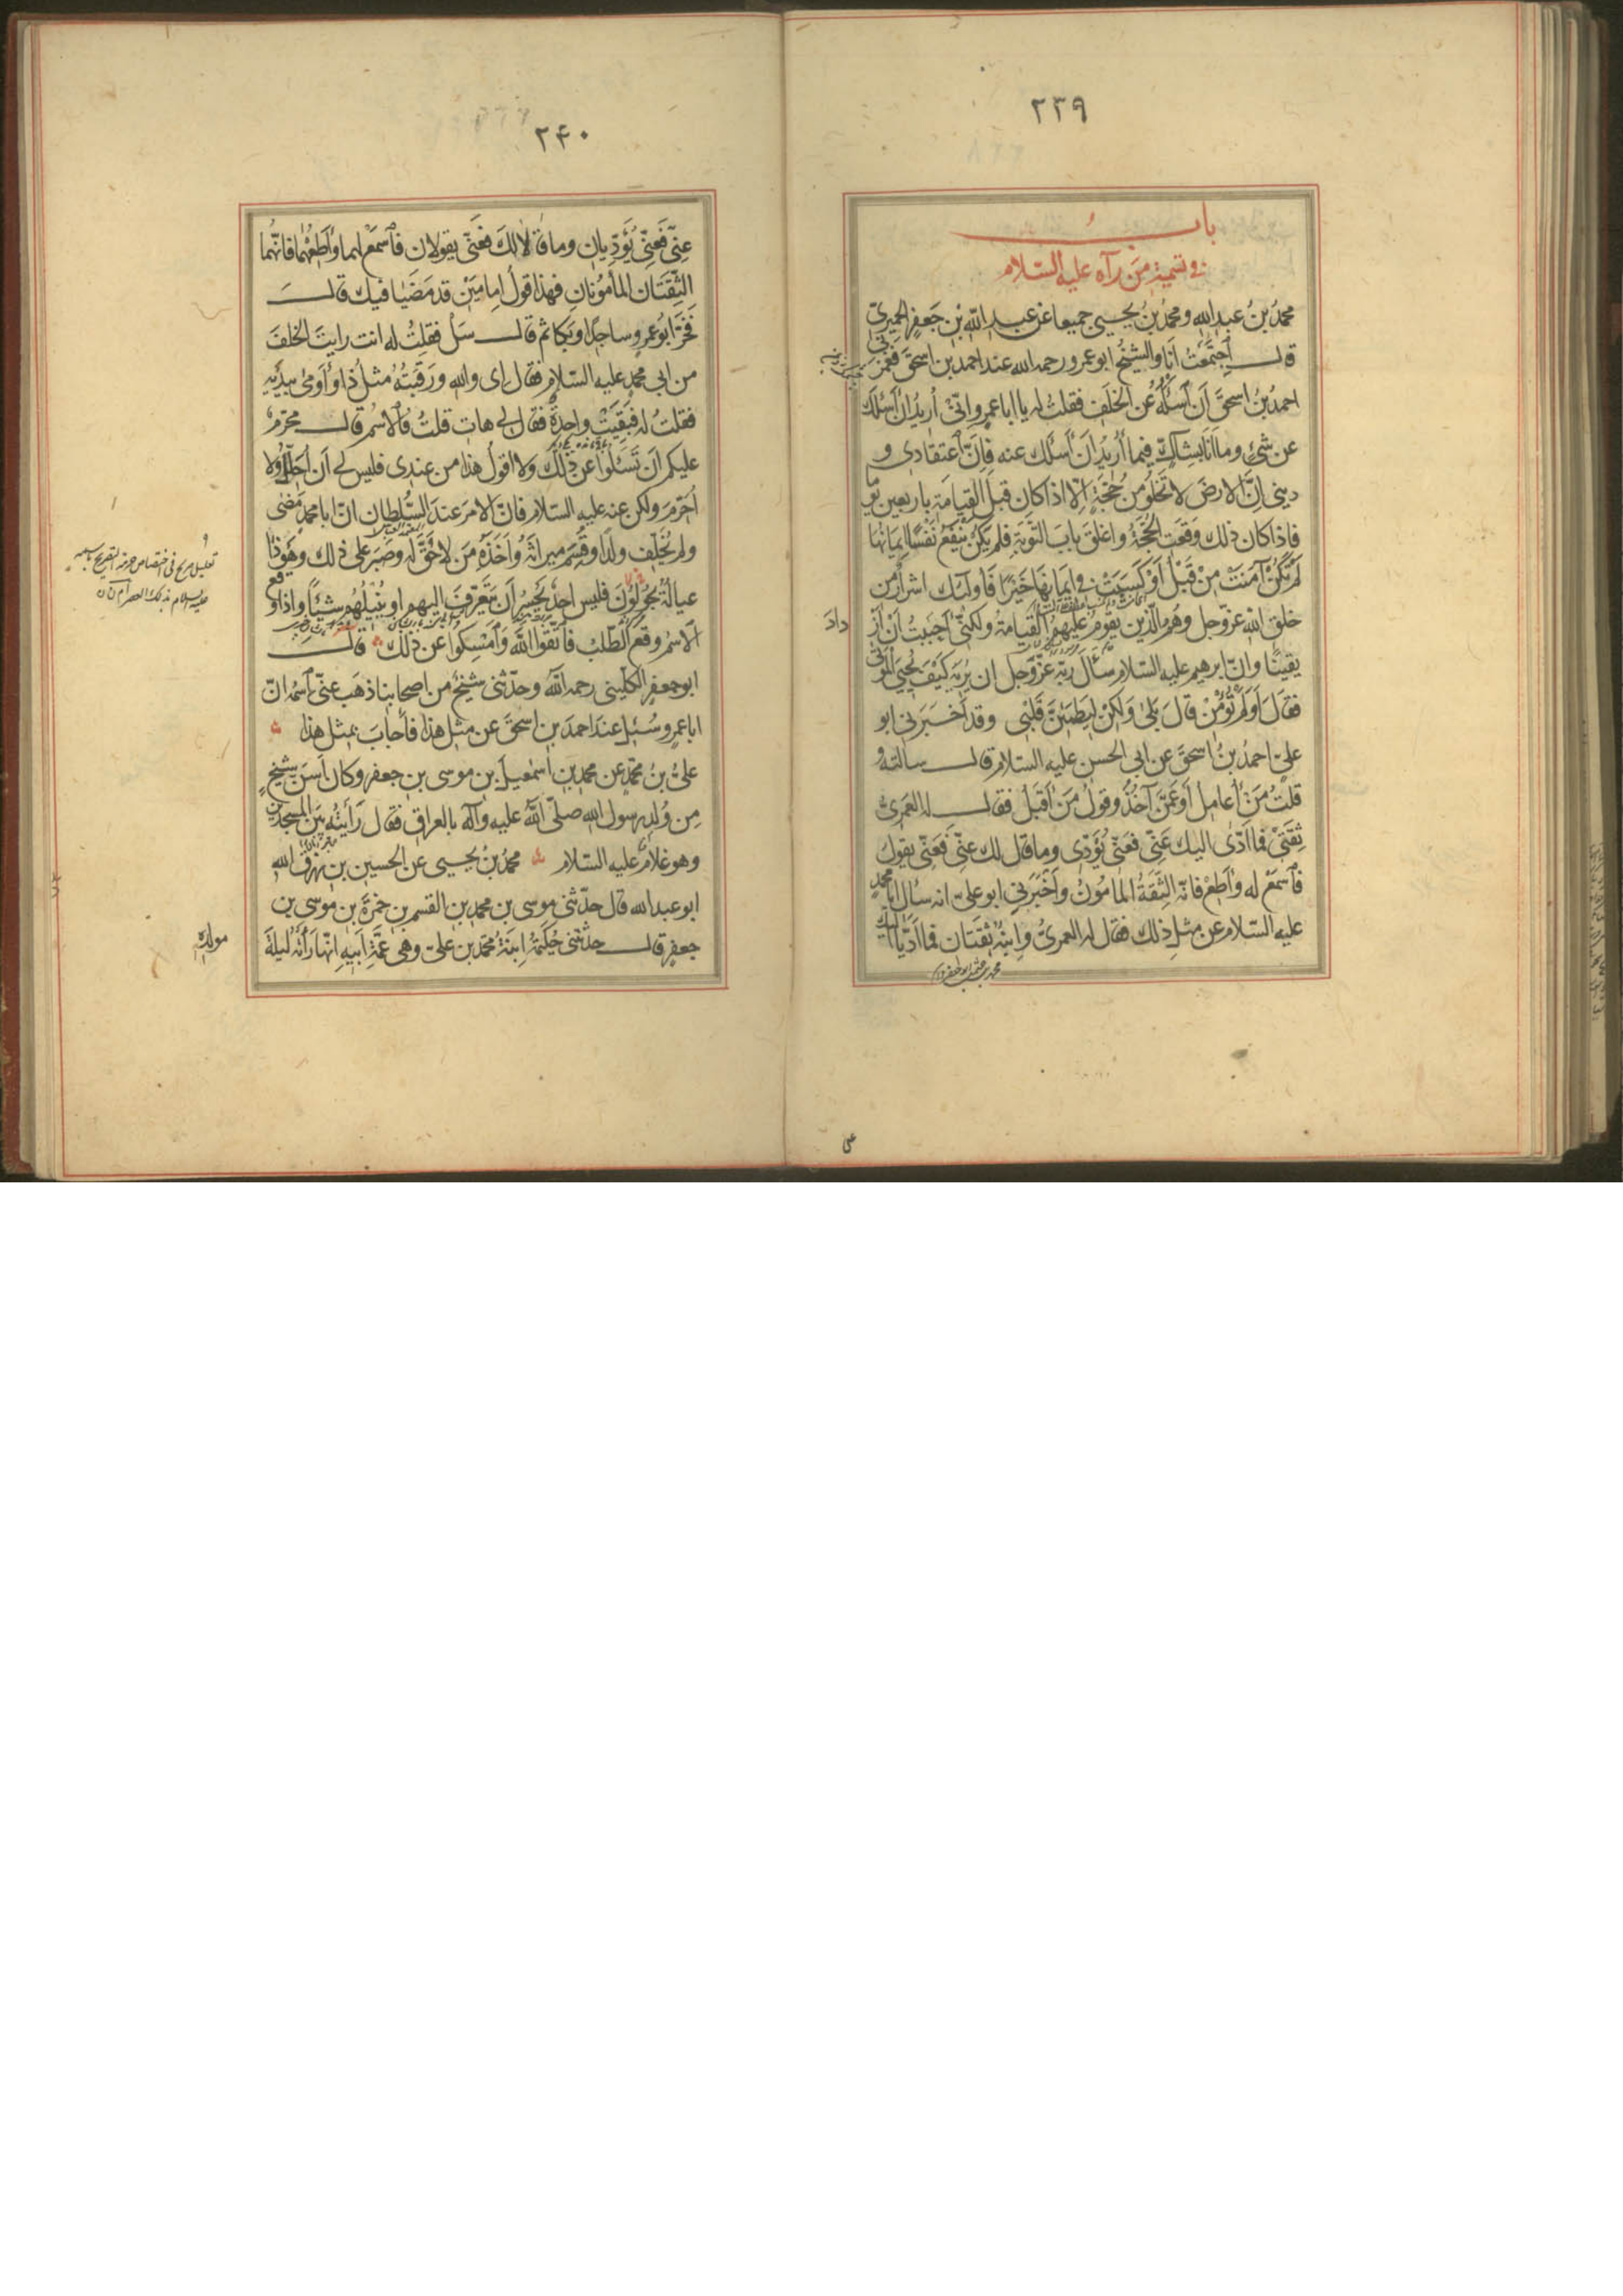 ٢٣٩
باب
في تسمية من رآه عليه السّلام
محمّدُ بنُ عبدِ اللّه ومحمّدُ بنُ يحيى جميعا عن عبدِ اللّهِ بْنِ جَعفرٍ الحميريّ
قال اجتمَعْتُ أنَا والشيخُ ابوعمرو رحمه الله عند احمد بن اسحقَ فغمزَني
احمدُ بنُ اسحقَ أن أسئلَهُ عن الخلَفِ فقلتُ له يا اباعمرٍو إنّي أُريدُ ان أسئلَك
عن شيءٍ وما أنا بشاكٍّ فيما أُريدُ أن أسئلك عنه فإنّ اعتقادي و
ديني انّ الارضَ لا تَخلُو من حُجّةٍ إلّا اذا كان قبلَ القيامة باربعين يوما
فاذا كان ذلك وقعت الحُجّةُ واغلق بابَ التوبةِ فلم يكن يَنْفَعُ نَفْسًا إيمانُها
لَمْ تَكُنْ آمَنَتْ مِنْ قَبْلُ أَوْ كَسَبَتْ في إيمانِها خَيْرًا فأولئك اشرارٌ من
خلق الله عزّ وجل وهُم الّذين يقومُ عليهم القيامة ولكنّي أحببتُ أنْ أزْ
دادَ
يقينًا وانّ ابرهيم عليه السّلام سأل ربّه عزّ وجل ان يُرِيَه كَيْفَ يُحْيي الموتى
فقال أَوَلَمْ تُؤْمِنْ قالَ بَلى وَلكِنْ لِيَطْمَئِنَّ قَلْبي وقد أخبرني ابو
عليّ احمدُ بنُ اسحقَ عن ابي الحسن عليه السّلام قال سالته و
قلتُ مَنْ أُعامل أوْ عَمّنْ آخُذُ وقولَ مَنْ أقبلُ فقال له العَمري
ثِقَتي فما أدّى اليك عَنّي فعَنّي يُؤدّي وما قال لك عنّي فعَنّي يقول
فاسمعْ له وأطِعْ فانّه الثِّقةُ المأمُون وأخبرني ابو عليّ انه سأل ابا محمدٍ
عليه السّلام عن مثل ذلك فقال له العمريُّ وابنُه ثقتان فما أدّيا اليك
٢۴٠
عنّي فَعَنّي يُؤدّيان وما قالا لك فعَنّي يقولان فاسمعْ لهما وأطِعْهُما فانّهما
الثّقَتان المأمُونان فهذا قولُ إمامَيْن قد مَضَيا فيك قال
فخَرّ ابو عمرٍو ساجدًا وبكا ثم قال سَلْ فقلتُ له انت رايتَ الخلفَ
من ابي محمّدٍ عليه السّلام فقال اي والله ورَقبتُه مثلُ ذا وأومى بيدَيْهِ
فقلتُ له فبَقِيَتْ واحدةٌ فقال لي هاتِ قلتُ فالاسمُ قال محرّمٌ
عليكم أن تَسئلوا عن ذلك ولا اقولُ هذا من عندي فليس لي أن أُحلّلَ ولا
أُحرّمَ ولكن عنه عليه السّلام فانّ الامرَ عندَ السُّلطان انّ ابا محمدٍ مَضى
ولم يُخلّف ولدًا وقُسّم ميراثُه وأخذَهُ مَن لا حَقَّ له وصبر على ذلك وهُوَ ذا
عيالُهُ يجُولُونَ فليس احدٌ يَجسُر أن يتعرّفَ اليهم او يُنيلَهُم شيئًا واذا وقع
الاسمُ وقع الطّلبُ فاتّقُوا الله وأمْسِكُوا عن ذلك قال
ابو جعفرٍ الكلينيّ رحمه الله وحدّثني شيخٌ من اصحابنا ذهَب عنّي اسمُه انّ
اباعمرٍو سُئِل عند احمدَ بن اسحقَ عن مثل هذا فأجابَ بمثل هذا
عليُّ بنُ محمّدٍ عن محمد بن اسمعيلَ بن موسى بن جعفرٍ وكان أسَنّ شيخٍ
مِن وُلدِ رسول الله صلّى اللّهُ عليه وآله بالعراق فقال رَأيتُه بَيْنَ المسجدين
وهو غلامٌ عليه السّلام محمّدُ بنُ يحيى عن الحسين بن رزق الله
ابو عبدالله قال حدّثني موسى بن محمد بن القسم بن حمزةَ بن موسى بن
جعفرٍ قال حدّثتني حكيمةُ ابنةُ محمّد بن عليّ وهي عمّةُ أبيه انّها رأته ليلةَ
مولده